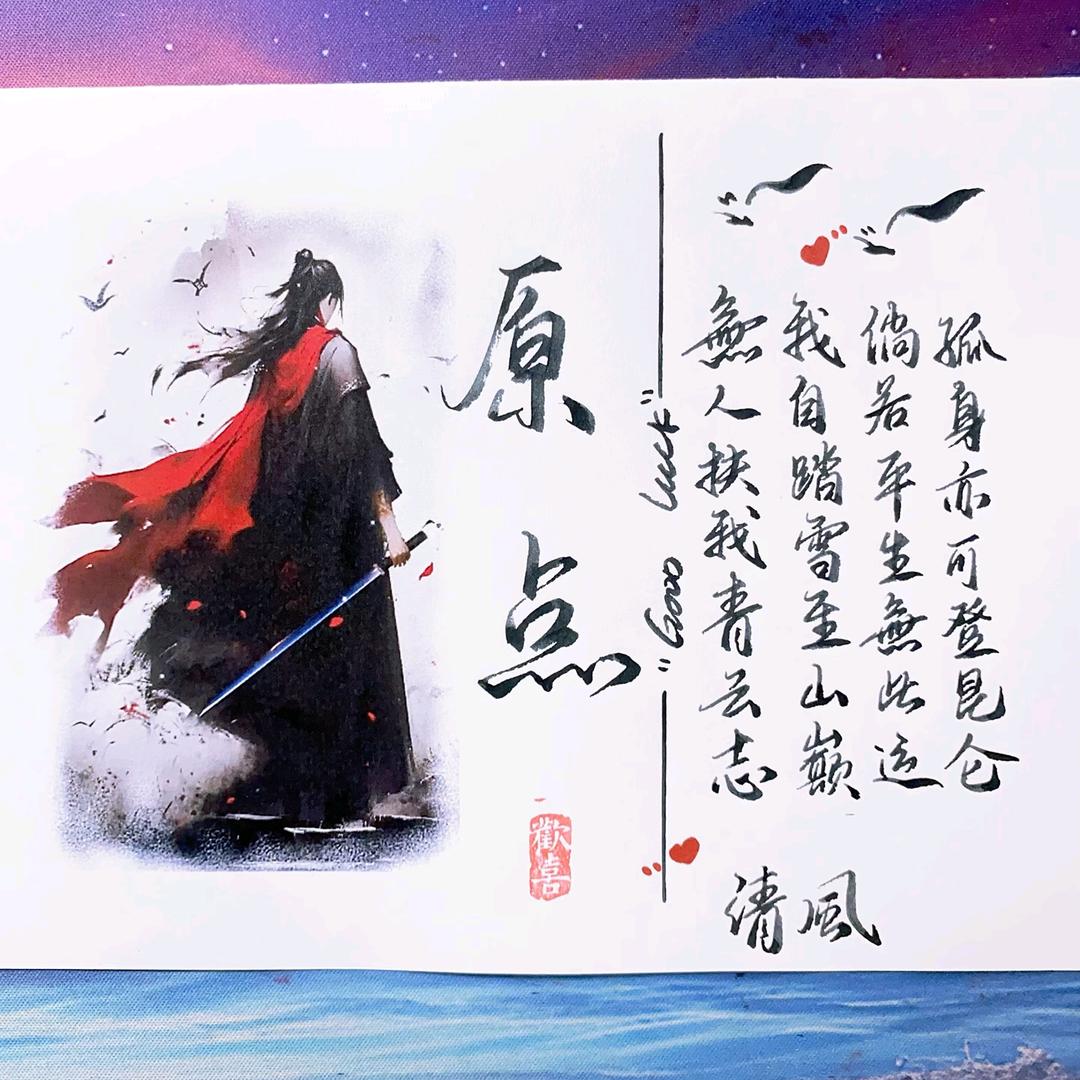 孤身亦可登昆仑
倘若平生無此运
我自踏雪至山巅
無人扶我青云志
清风
"Good Luck"
原点
歡喜